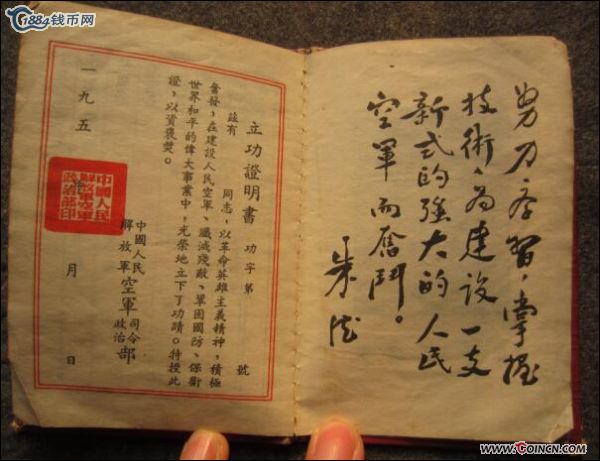 1884钱币网
努力学習,掌握
技術,為建設一支
新式的強大的人民
空軍而奮鬥。
朱德
立功證明書 功字第 號
茲有 同志,以革命英雄主義精神,積極
奮發,在建設人民空軍、殲滅殘敵、鞏固國防、保衛
世界和平的偉大事業中,光榮地立下了功蹟。特授此
證,以資褒獎。
中國人民
解放軍空軍司令政治部
一九五 月 日
www.COINCN.com